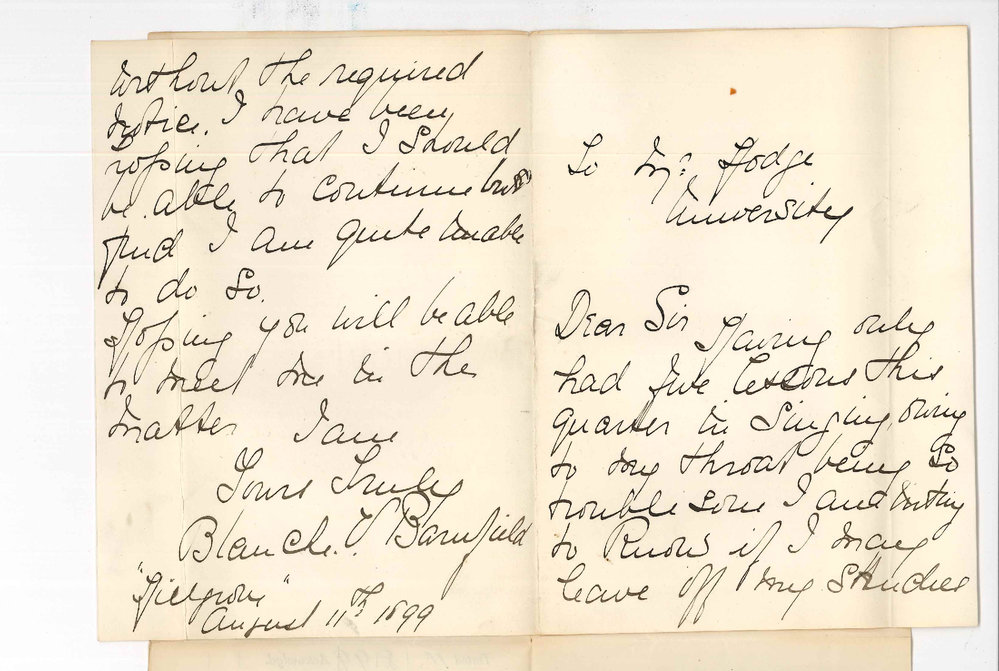 To Mr. Hodge
University
Dear Sir Having only
had five lessons this
quarter in Singing, owing
to my throat being so
troublesome I am writing
to Know if I may
leave off my Studies
without the required
notice. I have been
hoping that I should
be able to continue but
find I am quite unable
to do so.
Hoping you will be able
to meet me in the
matter I am
Yours Truly
Blanche. V. Barnfield
August 11th 1899